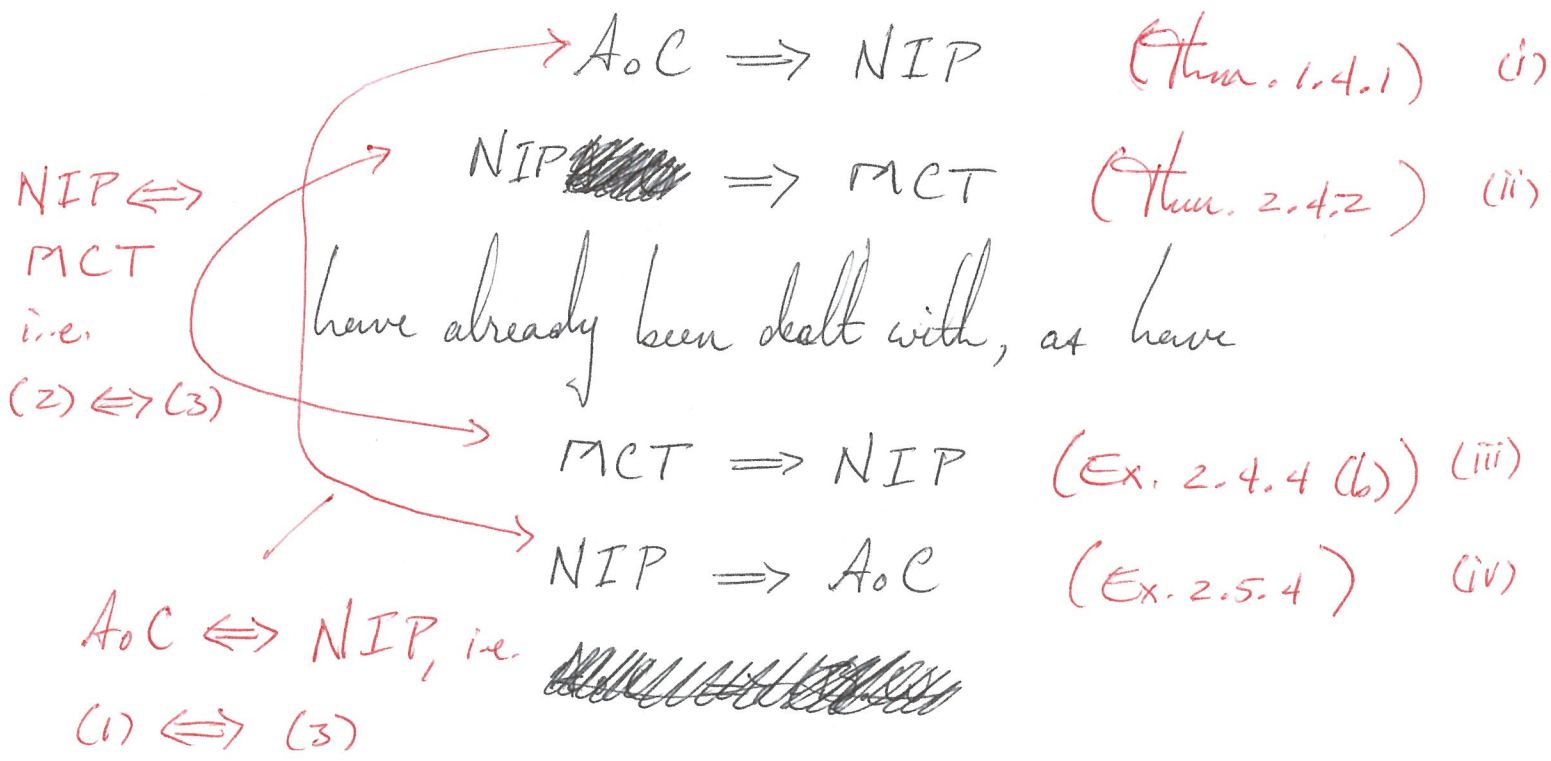 AoC ⟹ NIP (Thm. 1.4.1) (i)
NIP ⟹ MCT (Thm. 2.4.2) (ii)
NIP ⟺
MCT
i.e.
(2) ⟺ (3)
have already been dealt with, as have
MCT ⟹ NIP (Ex. 2.4.4 (b)) (iii)
NIP ⟹ AoC (Ex. 2.5.4) (iv)
AoC ⟺ NIP, i.e.
(1) ⟺ (3)